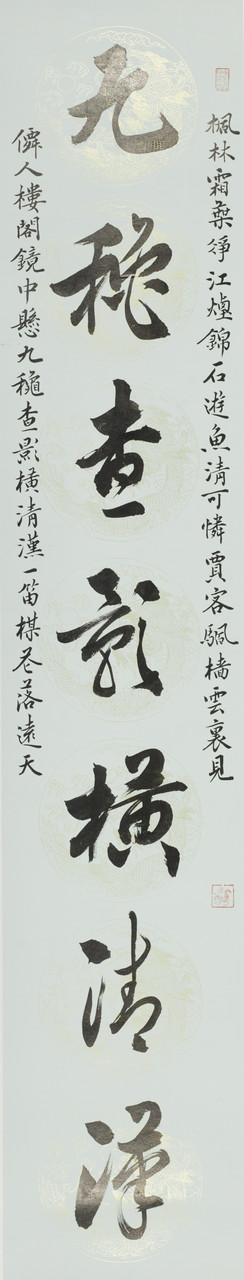 九穐查影橫清漢
楓林霜葉淨江煙錦石遊魚清可憐賈客颿檣雲裏見
僊人樓閣鏡中懸九穐查影橫清漢一笛楳花落遠天